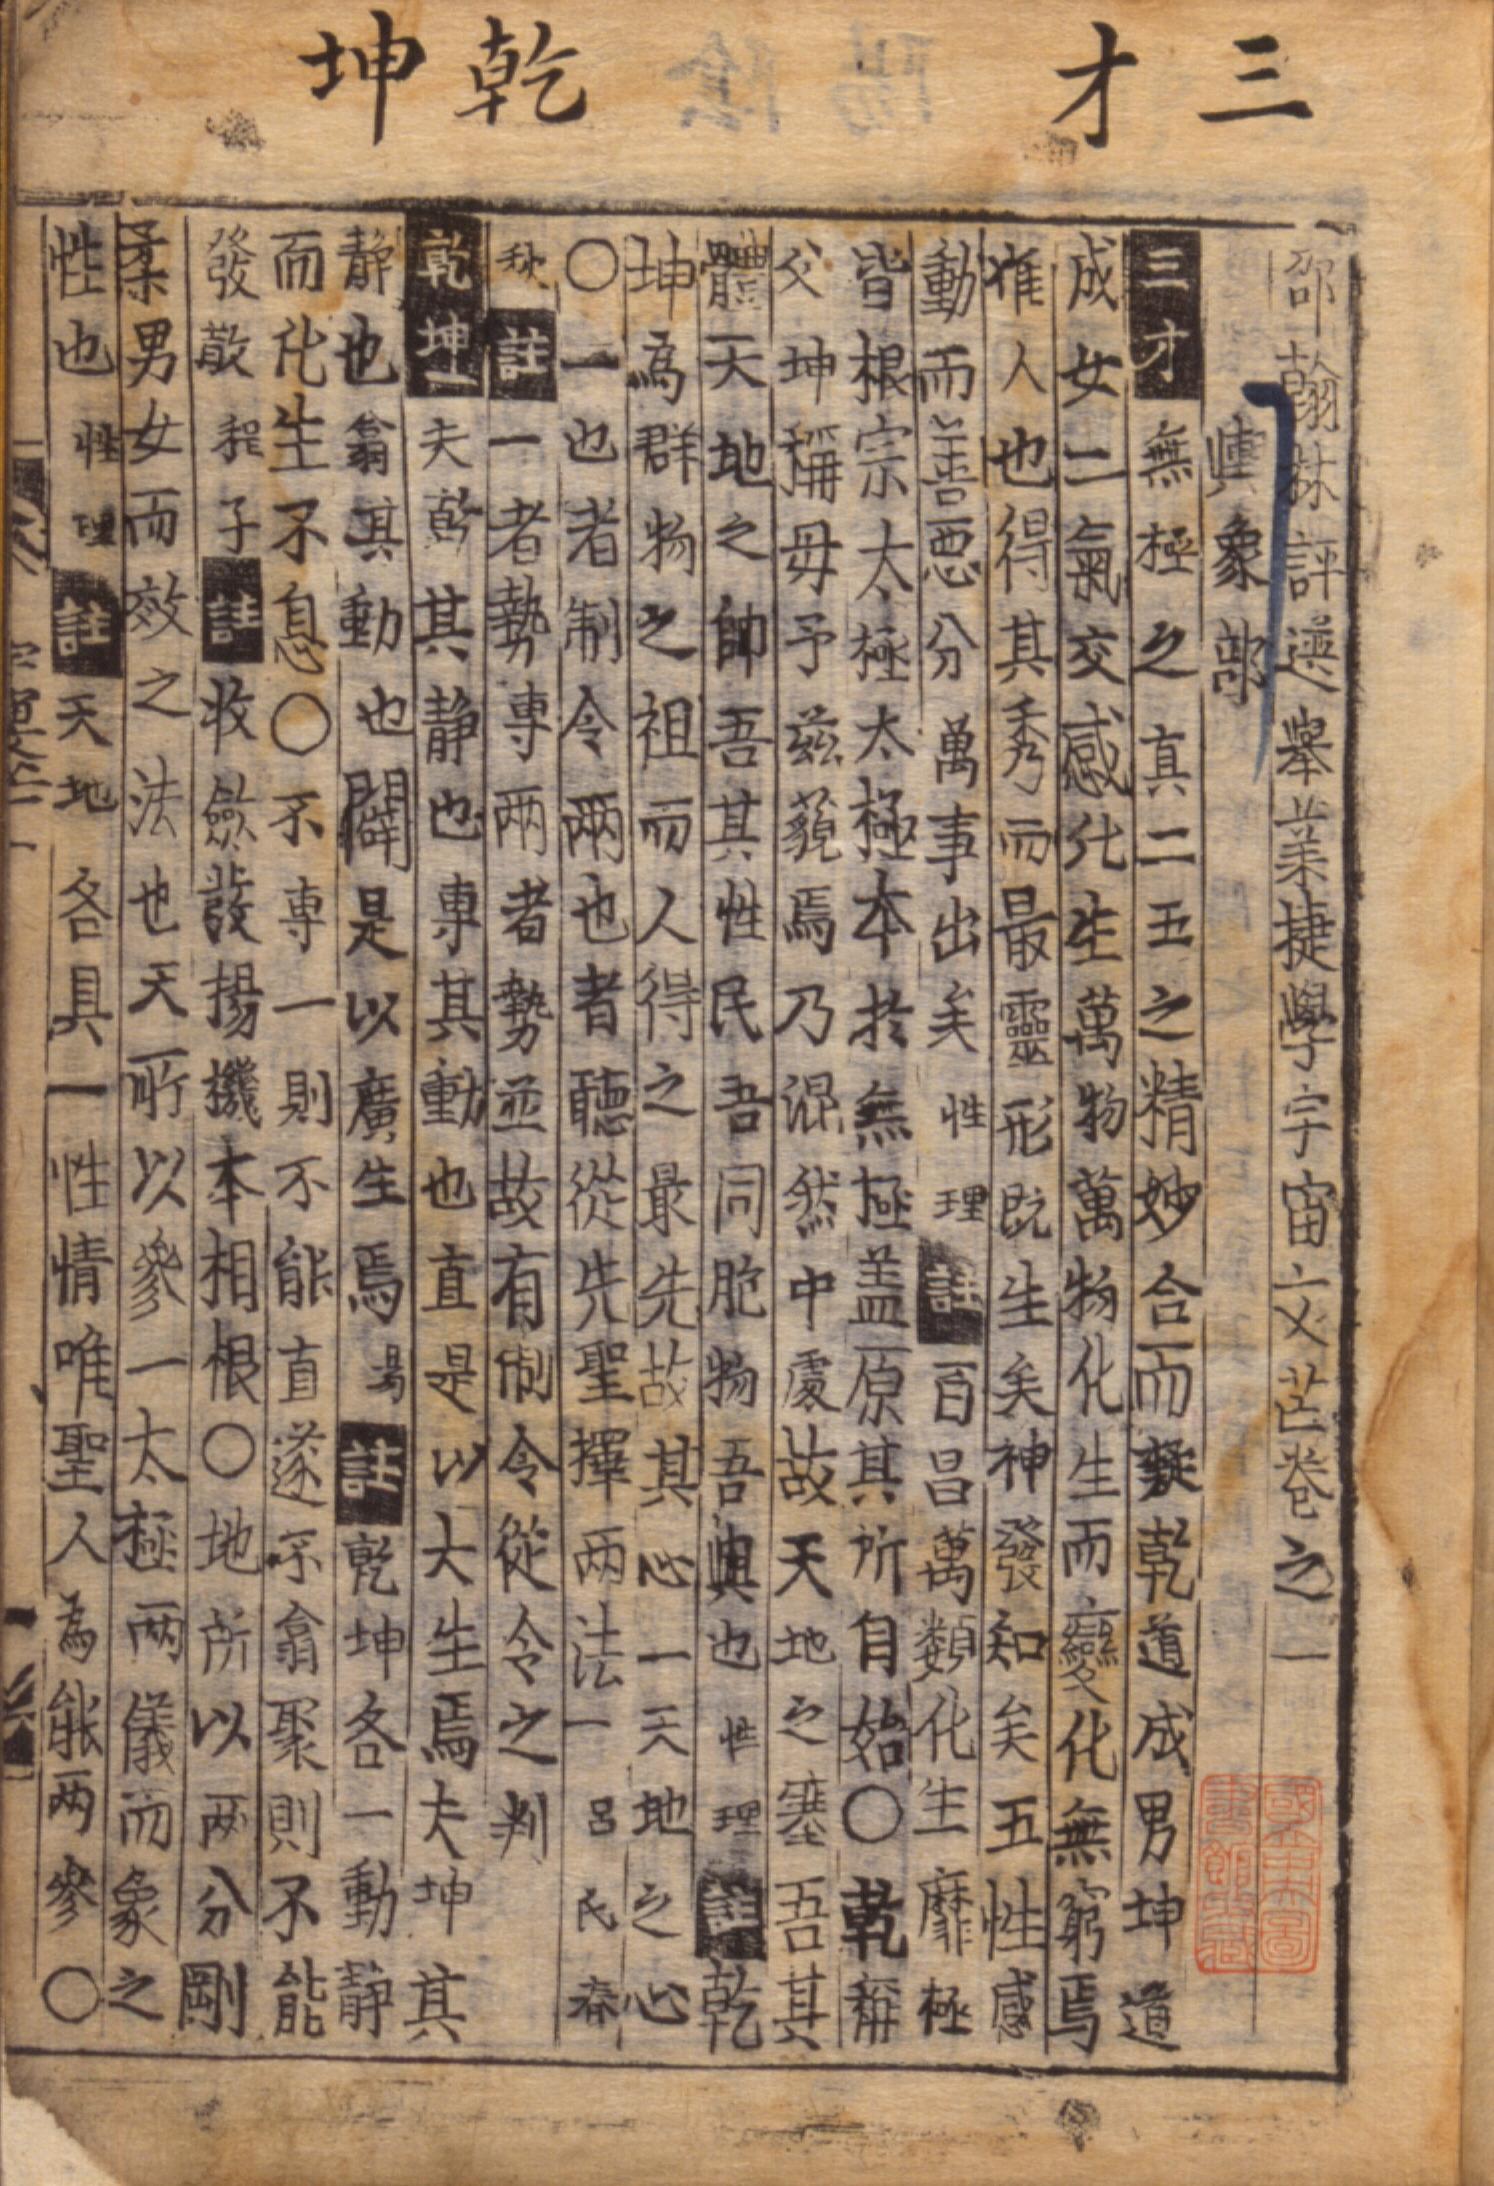 三才
乾坤
邵翰林評選舉業捷學宇宙文芒卷之一
輿象部
三才 無極之真二五之精妙合而凝乾道成男坤道
成女二氣交感化生萬物萬物化生而變化無窮焉
惟人也得其秀而最靈形既生矣神發知矣五性感
動而善惡分萬事出矣 性理 註 百昌萬類化生靡極
皆根宗太極太極本於無極盖原其所自始〇乾稱
父坤稱母予茲藐焉乃混然中處故天地之塞吾其
體天地之帥吾其性民吾同胞物吾與也 性理 註 乾
坤為群物之祖而人得之最先故其心一天地之心
〇一也者制令兩也者聽從先聖擇兩法一 呂氏春
秋 註 一者勢專兩者勢並故有制令從令之判
乾坤 夫乾其静也專其動也直是以大生焉夫坤其
静也翕其動也闢是以廣生焉 易 註 乾坤各一動静
而化生不息〇不專一則不能直遂不翕聚則不能
發散 程子 註 收斂發揚機本相根〇地所以兩分剛
柔男女而效之法也天所以參一太極兩儀而象之
性也 性理 註 天地各具一性情唯聖人為能兩參〇